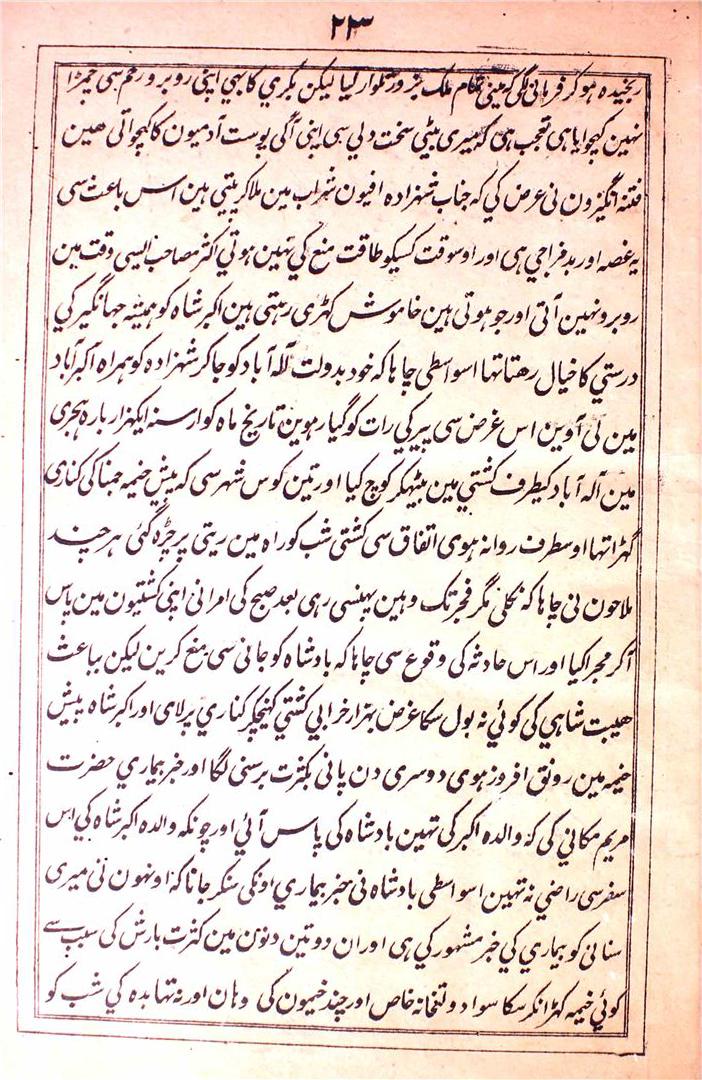 ۲۳
رنجیدہ ہو کر فرمانی لگی کہ مینی تمام ملک بزور تلوار لیا لیکن بکری کا بہی اپنی روبرو رحم سی چمڑا
نہین کہچوایا ہی تعجب ہی کہ میری بیٹی سخت دلی سی اپنی آگی پوست آدمیون کا کہچواتی ہین
فتنہ انگیزون نی عرض کی کہ جناب شہزادہ افیون شراب مین ملا کر پیتی ہین اس باعث سی
یہ غصہ اور بدمزاجی ہی اور اوسوقت کسیکو طاقت منع کی نہین ہوتی اکثر مصاحب ایسی وقت مین
روبرو نہین آتی اور جو ہوتی ہین خاموش کہڑی رہتی ہین اکبر شاہ کو ہمیشہ جہانگیر کی
درستی کا خیال رہتا تہا اسواسطی چاہا کہ خود بدولت آلہ آباد کو جا کر شہزادہ کو ہمراہ اکبرآباد
مین لی آوین اس غرض سی پیر کی رات کو گیارہوین تاریخ ماہ کوار سنہ ایکہزار بارہ ہجری
مین آلہ آباد کیطرف کشتی مین بیٹہکر کوچ کیا اور تین کوس شہر سی کہ پیش خیمہ جمنا کی کناری
کہڑا تہا اوسطرف روانہ ہوی اتفاق سی کشتی شب کو راہ مین ریتی پر چڑہ گئی ہر چند
ملاحون نی چاہا کہ نکلی مگر فجر تک وہین پہنسی رہی بعد صبح کی امرا نی اپنی کشتیون مین پاس
آکر مجرا کیا اور اس حادثہ کی وقوع سی چاہا کہ بادشاہ کو جانی سی منع کرین لیکن بباعث
ہیبت شاہی کی کوئی نہ بول سکا غرض بہزار خرابی کشتی کہینچکر کناری پر لای اور اکبر شاہ پیش
خیمہ مین رونق افروز ہوی دوسری دن پانی بکثرت برسنی لگا اور خبر بیماری حضرت
مریم مکانی کی کہ والدہ اکبر کی تہین بادشاہ کی پاس آئی اور چونکہ والدہ اکبر شاہ کی اس
سفر سی راضی نہ تہین اسواسطی بادشاہ نی خبر بیماری اونکی سنکر جانا کہ اونہون نی میری
سنانی کو بیماری کی خبر مشہور کی ہی اور ان دو تین دنون مین کثرت بارش کی سبب سے
کوئی خیمہ کہڑا نکر سکا سوا دولتخانہ خاص اور چند خیمون کی وہان اور نہ تہا بدہ کی شب کو